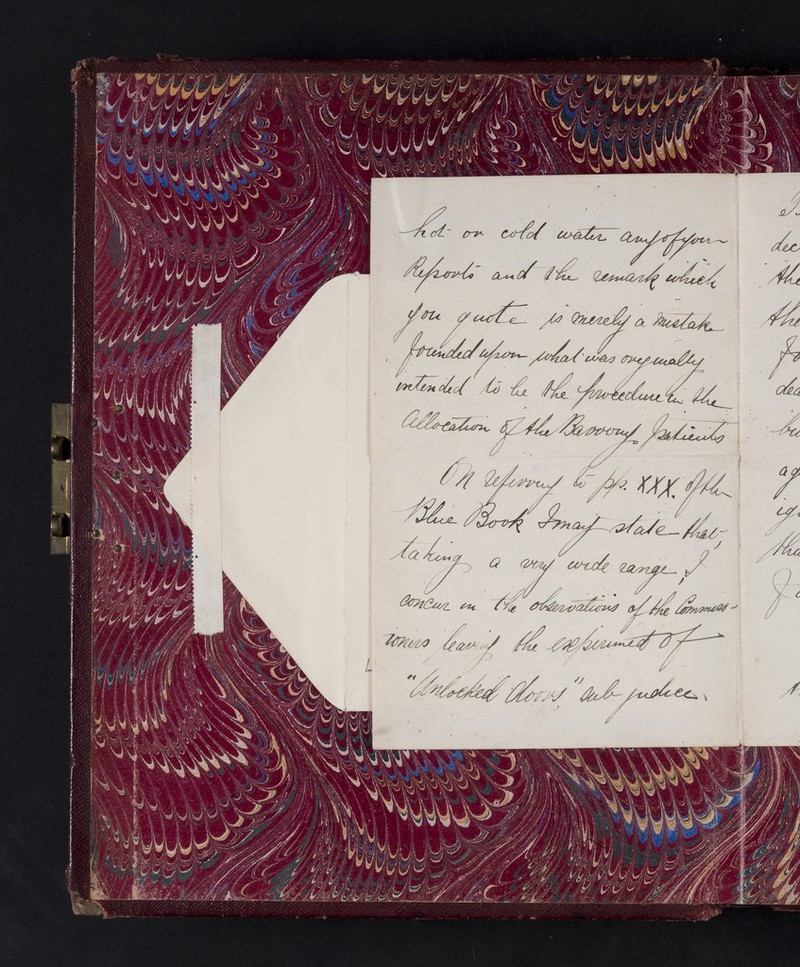 hot or cold water any of your
Reports and the remark which
you quote is merely a mistake
founded upon what was originally
intended to be the procedure in the
Allocation of the Barony patients
On referring to pp. XXX. of the
Blue Book I may state that,
taking a very wide range, I
concur in the observations of the Commiss-
ioners leaving the experiment of
"Unlocked doors" sub judice.
dec
the
the
dea
bu
ag
ig
tha